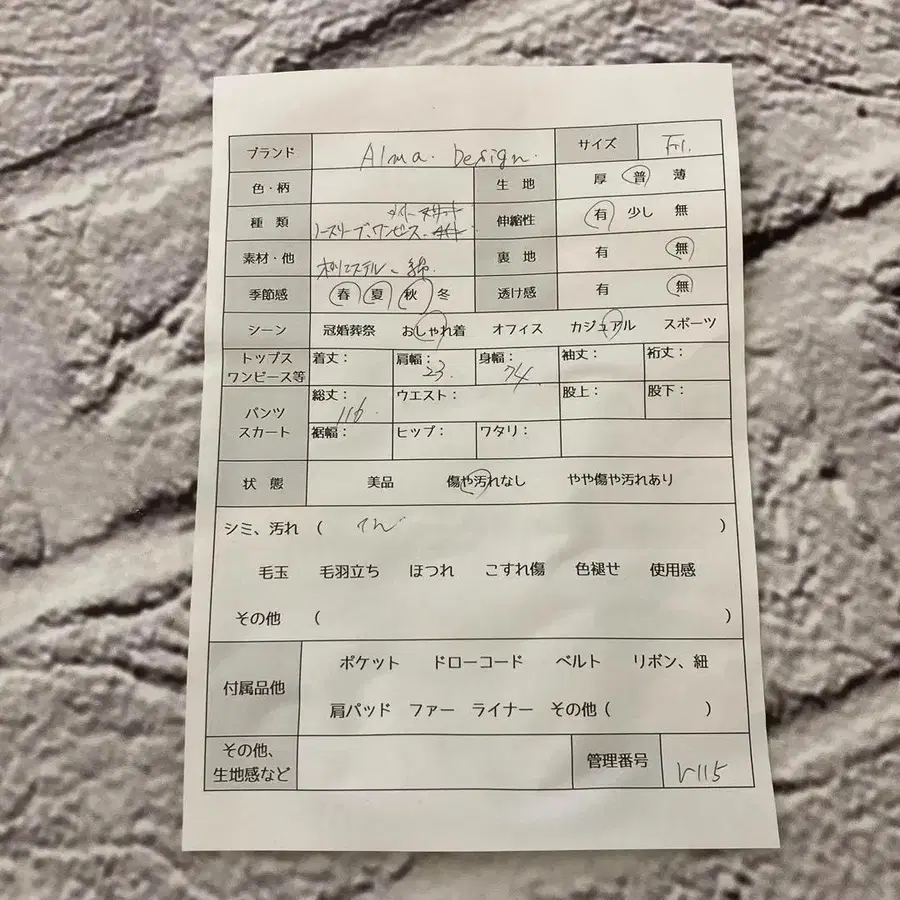 ブランド Alma. Design. サイズ Fri.
色・柄 生地 厚 普 薄
種類 ノースリーブ、ワンピース 伸縮性 有 少し 無
素材・他 ポリエステル、綿 裏地 有 無
季節感 春 夏 秋 冬 透け感 有 無
シーン 冠婚葬祭 おしゃれ着 オフィス カジュアル スポーツ
トップス ワンピース等 着丈： 肩幅： 23. 身幅： 74. 袖丈： 裄丈：
パンツ スカート 総丈： 116. ウエスト： 股上： 股下：
裾幅： ヒップ： ワタリ：
状態 美品 傷や汚れなし やや傷や汚れあり
シミ、汚れ ( )
毛玉 毛羽立ち ほつれ こすれ傷 色褪せ 使用感
その他 ( )
付属品他 ポケット ドローコード ベルト リボン、紐
肩パッド ファー ライナー その他 ( )
その他、
生地感など 管理番号 V115